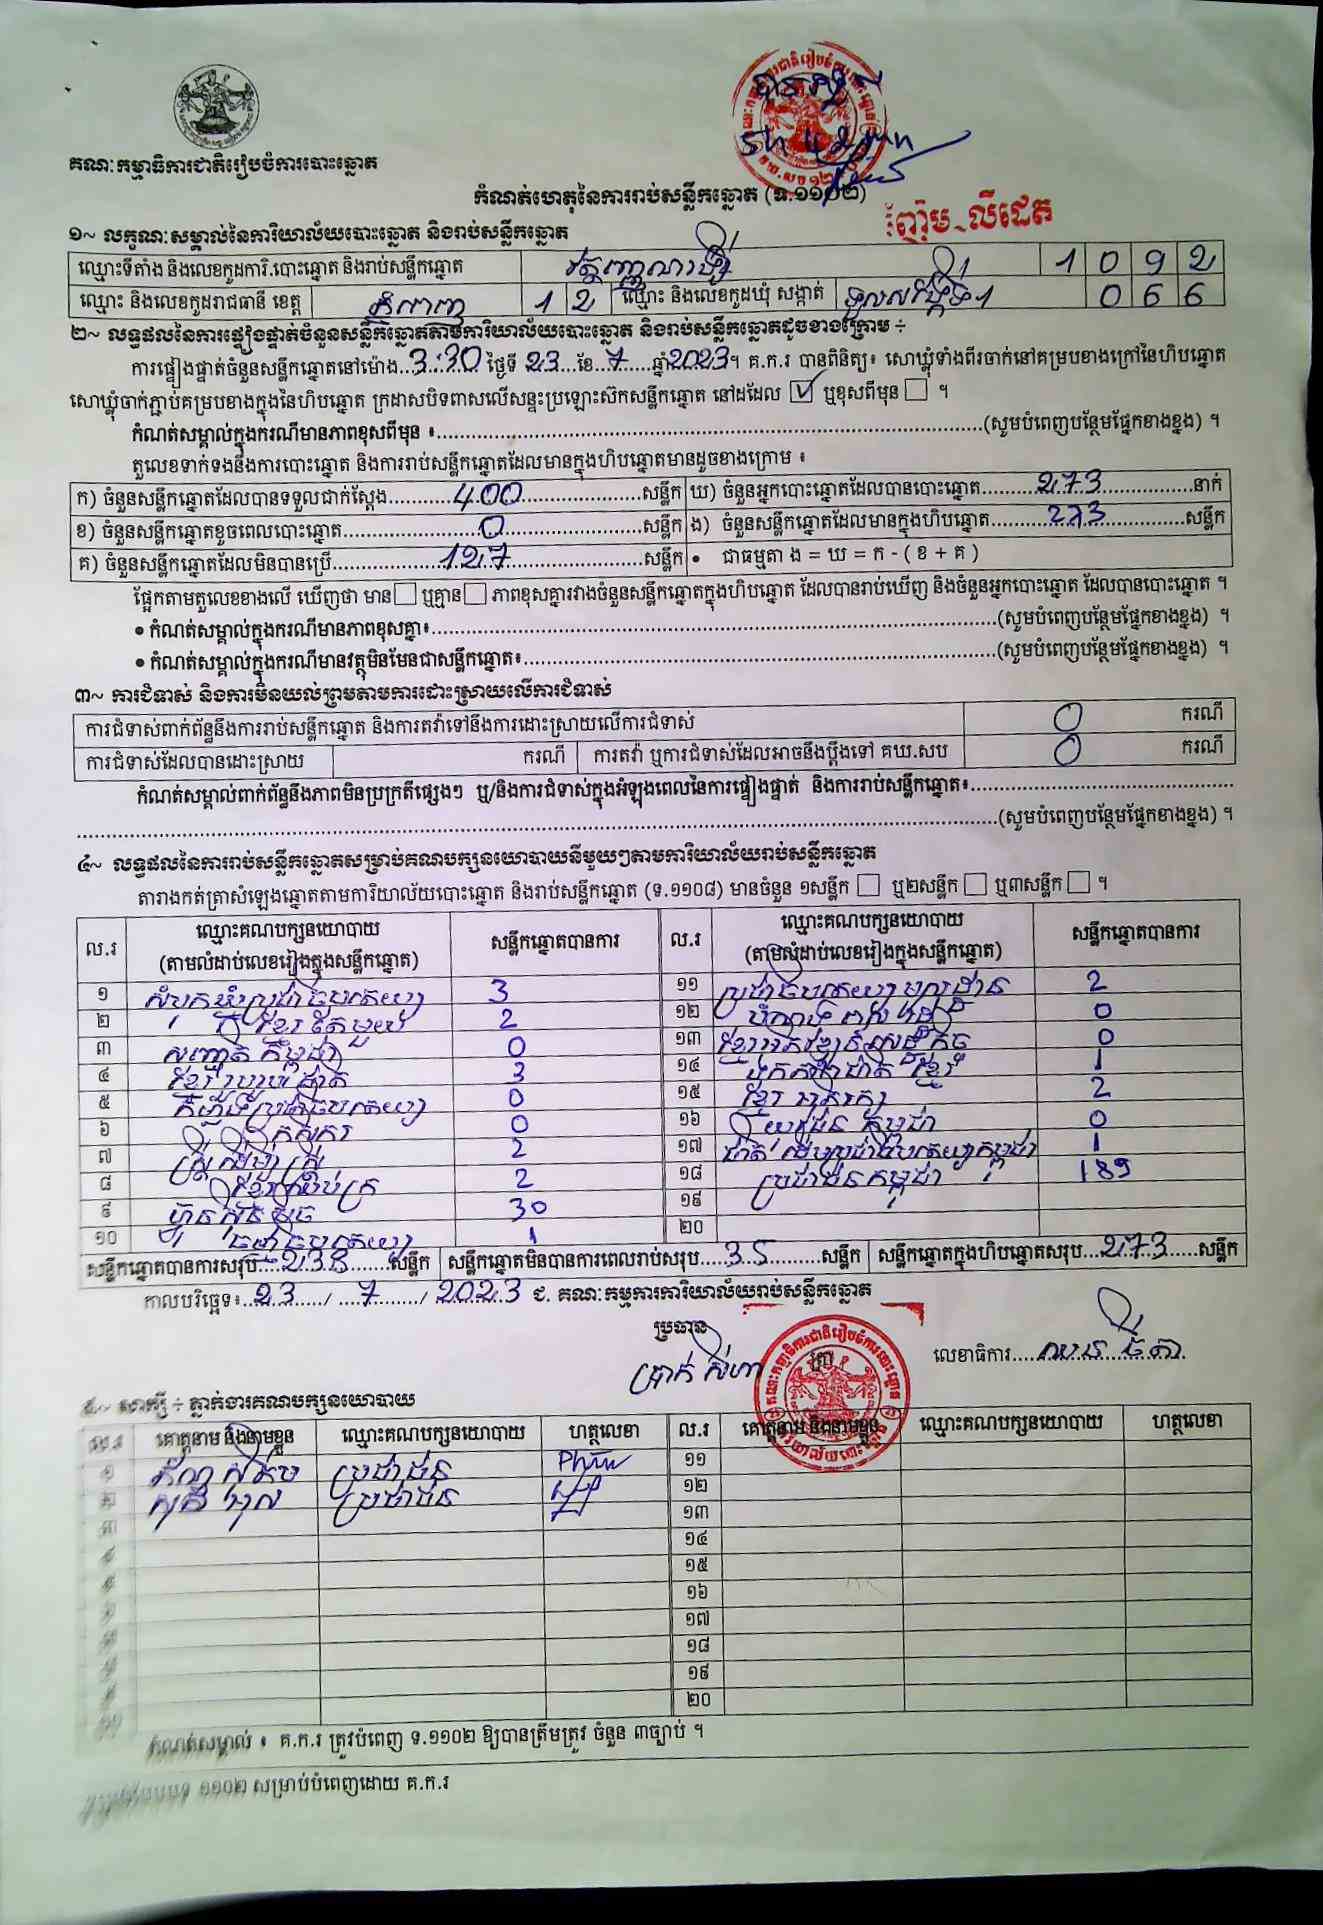 គណៈកម្មាធិការជាតិរៀបចំការបោះឆ្នោត
កំណត់ហេតុនៃការរាប់សន្លឹកឆ្នោត (ទ.១១០២)
ញ៉ឹម លីដេត
១~ លក្ខណៈសម្គាល់នៃការិយាល័យបោះឆ្នោត និងរាប់សន្លឹកឆ្នោត
ឈ្មោះទីតាំង និងលេខកូដការិ.បោះឆ្នោត និងរាប់សន្លឹកឆ្នោត 1 0 9 2
ឈ្មោះ និងលេខកូដរាជធានី ខេត្ត ភ្នំពេញ 1 2 ឈ្មោះ និងលេខកូដឃុំ សង្កាត់ ទួលសង្កែទី1 0 6 6
២~ លទ្ធផលនៃការផ្ទៀងផ្ទាត់ចំនួនសន្លឹកឆ្នោតតាមការិយាល័យបោះឆ្នោត និងរាប់សន្លឹកឆ្នោតដូចខាងក្រោម ÷
ការផ្ទៀងផ្ទាត់ចំនួនសន្លឹកឆ្នោតនៅម៉ោង 3:30 ថ្ងៃទី 23 ខែ 7 ឆ្នាំ 2023។ គ.ក.រ បានពិនិត្យ៖ សោឃ្លុំទាំងពីរចាក់នៅគម្របខាងក្រៅនៃហិបឆ្នោត
សោឃ្លុំចាក់ភ្ជាប់គម្របខាងក្នុងនៃហិបឆ្នោត ក្រដាសបិទពាសលើសន្ទះប្រឡោះស៊កសន្លឹកឆ្នោត នៅដដែល ☑ ឬខុសពីមុន ☐ ។
កំណត់សម្គាល់ក្នុងករណីមានភាពខុសពីមុន ៖ (សូមបំពេញបន្ថែមផ្នែកខាងខ្នង) ។
តួលេខទាក់ទងនឹងការបោះឆ្នោត និងការរាប់សន្លឹកឆ្នោតដែលមានក្នុងហិបឆ្នោតមានដូចខាងក្រោម ៖
ក) ចំនួនសន្លឹកឆ្នោតដែលបានទទួលជាក់ស្តែង 400 សន្លឹក ឃ) ចំនួនអ្នកបោះឆ្នោតដែលបានបោះឆ្នោត 273 នាក់
ខ) ចំនួនសន្លឹកឆ្នោតខូចពេលបោះឆ្នោត 0 សន្លឹក ង) ចំនួនសន្លឹកឆ្នោតដែលមានក្នុងហិបឆ្នោត 273 សន្លឹក
គ) ចំនួនសន្លឹកឆ្នោតដែលមិនបានប្រើ 127 សន្លឹក • ជាធម្មតា ង = ឃ = ក - ( ខ + គ )
ផ្អែកតាមតួលេខខាងលើ ឃើញថា មាន ☐ ឬគ្មាន ☐ ភាពខុសគ្នារវាងចំនួនសន្លឹកឆ្នោតក្នុងហិបឆ្នោត ដែលបានរាប់ឃើញ និងចំនួនអ្នកបោះឆ្នោត ដែលបានបោះឆ្នោត ។
• កំណត់សម្គាល់ក្នុងករណីមានភាពខុសគ្នា៖ (សូមបំពេញបន្ថែមផ្នែកខាងខ្នង) ។
• កំណត់សម្គាល់ក្នុងករណីមានវត្ថុមិនមែនជាសន្លឹកឆ្នោត៖ (សូមបំពេញបន្ថែមផ្នែកខាងខ្នង) ។
៣~ ការជំទាស់ និងការមិនយល់ព្រមតាមការដោះស្រាយលើការជំទាស់
ការជំទាស់ពាក់ព័ន្ធនឹងការរាប់សន្លឹកឆ្នោត និងការតវ៉ាទៅនឹងការដោះស្រាយលើការជំទាស់ 0 ករណី
ការជំទាស់ដែលបានដោះស្រាយ ករណី ការតវ៉ា ឬការជំទាស់ដែលអាចនឹងប្តឹងទៅ គឃ.សប 0 ករណី
កំណត់សម្គាល់ពាក់ព័ន្ធនឹងភាពមិនប្រក្រតីផ្សេងៗ ឬ/និងការជំទាស់ក្នុងអំឡុងពេលនៃការផ្ទៀងផ្ទាត់ និងការរាប់សន្លឹកឆ្នោត៖
(សូមបំពេញបន្ថែមផ្នែកខាងខ្នង) ។
៤~ លទ្ធផលនៃការរាប់សន្លឹកឆ្នោតសម្រាប់គណបក្សនយោបាយនីមួយៗតាមការិយាល័យរាប់សន្លឹកឆ្នោត
តារាងកត់ត្រាសំឡេងឆ្នោតតាមការិយាល័យបោះឆ្នោត និងរាប់សន្លឹកឆ្នោត (ទ.១១០៨) មានចំនួន ១សន្លឹក ☐ ឬ២សន្លឹក ☐ ឬ៣សន្លឹក ☐ ។
ល.រ ឈ្មោះគណបក្សនយោបាយ (តាមលំដាប់លេខរៀងក្នុងសន្លឹកឆ្នោត) សន្លឹកឆ្នោតបានការ ល.រ ឈ្មោះគណបក្សនយោបាយ (តាមលំដាប់លេខរៀងក្នុងសន្លឹកឆ្នោត) សន្លឹកឆ្នោតបានការ
១ សំបុកឃ្មុំប្រជាធិបតេយ្យ 3 ១១ ប្រជាធិបតេយ្យមូលដ្ឋាន 2
២ ខ្មែរតែមួយ 2 ១២ 0
៣ កម្ពុជា 0 ១៣ ខ្មែរអភិវឌ្ឍន៍សេដ្ឋកិច្ច 0
៤ ខ្មែររួបរួមជាតិ 3 ១៤ ឯកភាពជាតិ ខ្មែរ 1
៥ កម្លាំងប្រជាធិបតេយ្យ 0 ១៥ ខ្មែរ អភិរក្ស 2
៦ កសិករ 0 ១៦ យុវជន កម្ពុជា 0
៧ ស្ត្រីដើម្បីស្ត្រី 2 ១៧ ជាតិ ប្រជាធិបតេយ្យកម្ពុជា 1
៨ 2 ១៨ ប្រជាជនកម្ពុជា 189
៩ ហ៊្វុនស៊ិនប៉ិច 30 ១៩
១០ ធម្មាធិបតេយ្យ 1 ២០
សន្លឹកឆ្នោតបានការសរុប 238 សន្លឹក សន្លឹកឆ្នោតមិនបានការពេលរាប់សរុប 35 សន្លឹក សន្លឹកឆ្នោតក្នុងហិបឆ្នោតសរុប 273 សន្លឹក
កាលបរិច្ឆេទ៖ 23 / 7 / 2023 ជ. គណៈកម្មការការិយាល័យរាប់សន្លឹកឆ្នោត
ប្រធាន
ប្រាក់ សីហា លេខាធិការ
៥~ សាក្សី ÷ ភ្នាក់ងារគណបក្សនយោបាយ
ល.រ គោត្តនាម និងនាមខ្លួន ឈ្មោះគណបក្សនយោបាយ ហត្ថលេខា ល.រ គោត្តនាម និងនាមខ្លួន ឈ្មោះគណបក្សនយោបាយ ហត្ថលេខា
១ ប្រជាជន ១១
២ ប្រជាជន ១២
៣ ១៣
១៤
១៥
១៦
១៧
១៨
១៩
២០
កំណត់សម្គាល់ ៖ គ.ក.រ ត្រូវបំពេញ ទ.១១០២ ឱ្យបានត្រឹមត្រូវ ចំនួន ៣ច្បាប់ ។
១១០២ សម្រាប់បំពេញដោយ គ.ក.រ